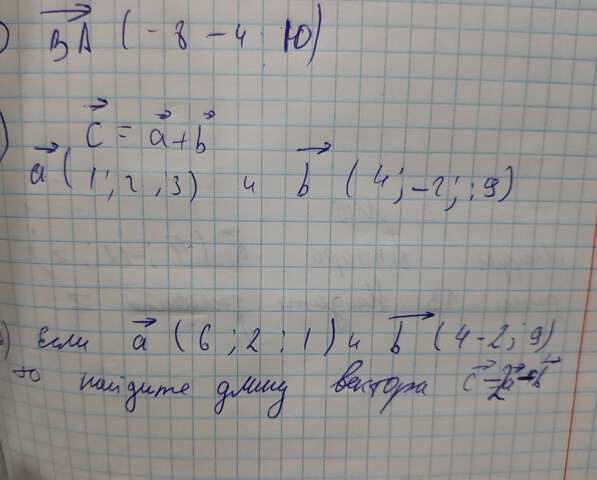 ) BA ( - 8 - 4 10)
) c = a + b
a ( 1; 2, 3) и b ( 4; -2; ; 9)
) Если a ( 6 ; 2 ; 1 ) и b ( 4 -2; 9)
то найдите длину вектора c